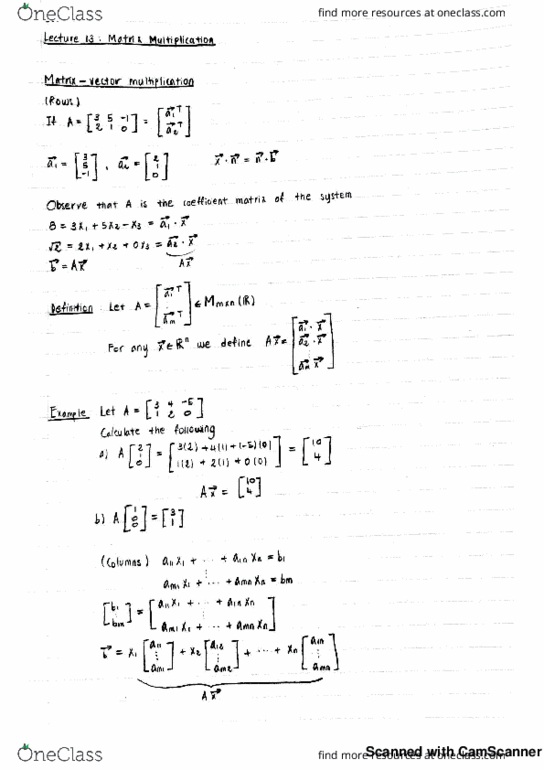 OneClass
find more resources at oneclass.com
Lecture 13: Matrix Multiplication
Matrix-vector multiplication
(Rows)
If A = [3 5 -1; 2 1 0] = [a₁ᵀ; a₂ᵀ]
a₁ = [3; 5; -1], a₂ = [2; 1; 0]    x⃗·n⃗ = n⃗·b⃗
Observe that A is the coefficient matrix of the system
8 = 3x₁ + 5x₂ - x₃ = a₁ · x⃗
√2 = 2x₁ + x₂ + 0x₃ = a₂ · x⃗
Ax⃗
b⃗ = Ax⃗
Definition: Let A = [a₁ᵀ; aₘᵀ] ∈ Mₘₓₙ (ℝ)
For any x⃗ ∈ ℝⁿ we define Ax⃗ = [a₁ · x⃗; a₂ · x⃗; aₘ x⃗]
Example Let A = [3 4 -5; 1 2 0]
Calculate the following
a) A[2; 1; 0] = [3(2) + 4(1) + (-5)(0); 1(2) + 2(1) + 0(0)] = [10; 4]
Ax⃗ = [10; 4]
b) A[1; 0; 0] = [3; 1]
(Columns) a₁₁x₁ + ⋯ + a₁ₙxₙ = b₁
⋮
aₘ₁x₁ + ⋯ + aₘₙxₙ = bₘ
[b₁; ⋮; bₘ] = [a₁₁x₁ + ⋯ + a₁ₙxₙ; ⋮; aₘ₁x₁ + ⋯ + aₘₙxₙ]
b⃗ = x₁[a₁₁; ⋮; aₘ₁] + x₂[a₁₂; ⋮; aₘ₂] + ⋯ + xₙ[a₁ₙ; ⋮; aₘₙ]
Ax⃗
OneClass
find more resources at oneclass.com
Scanned with CamScanner